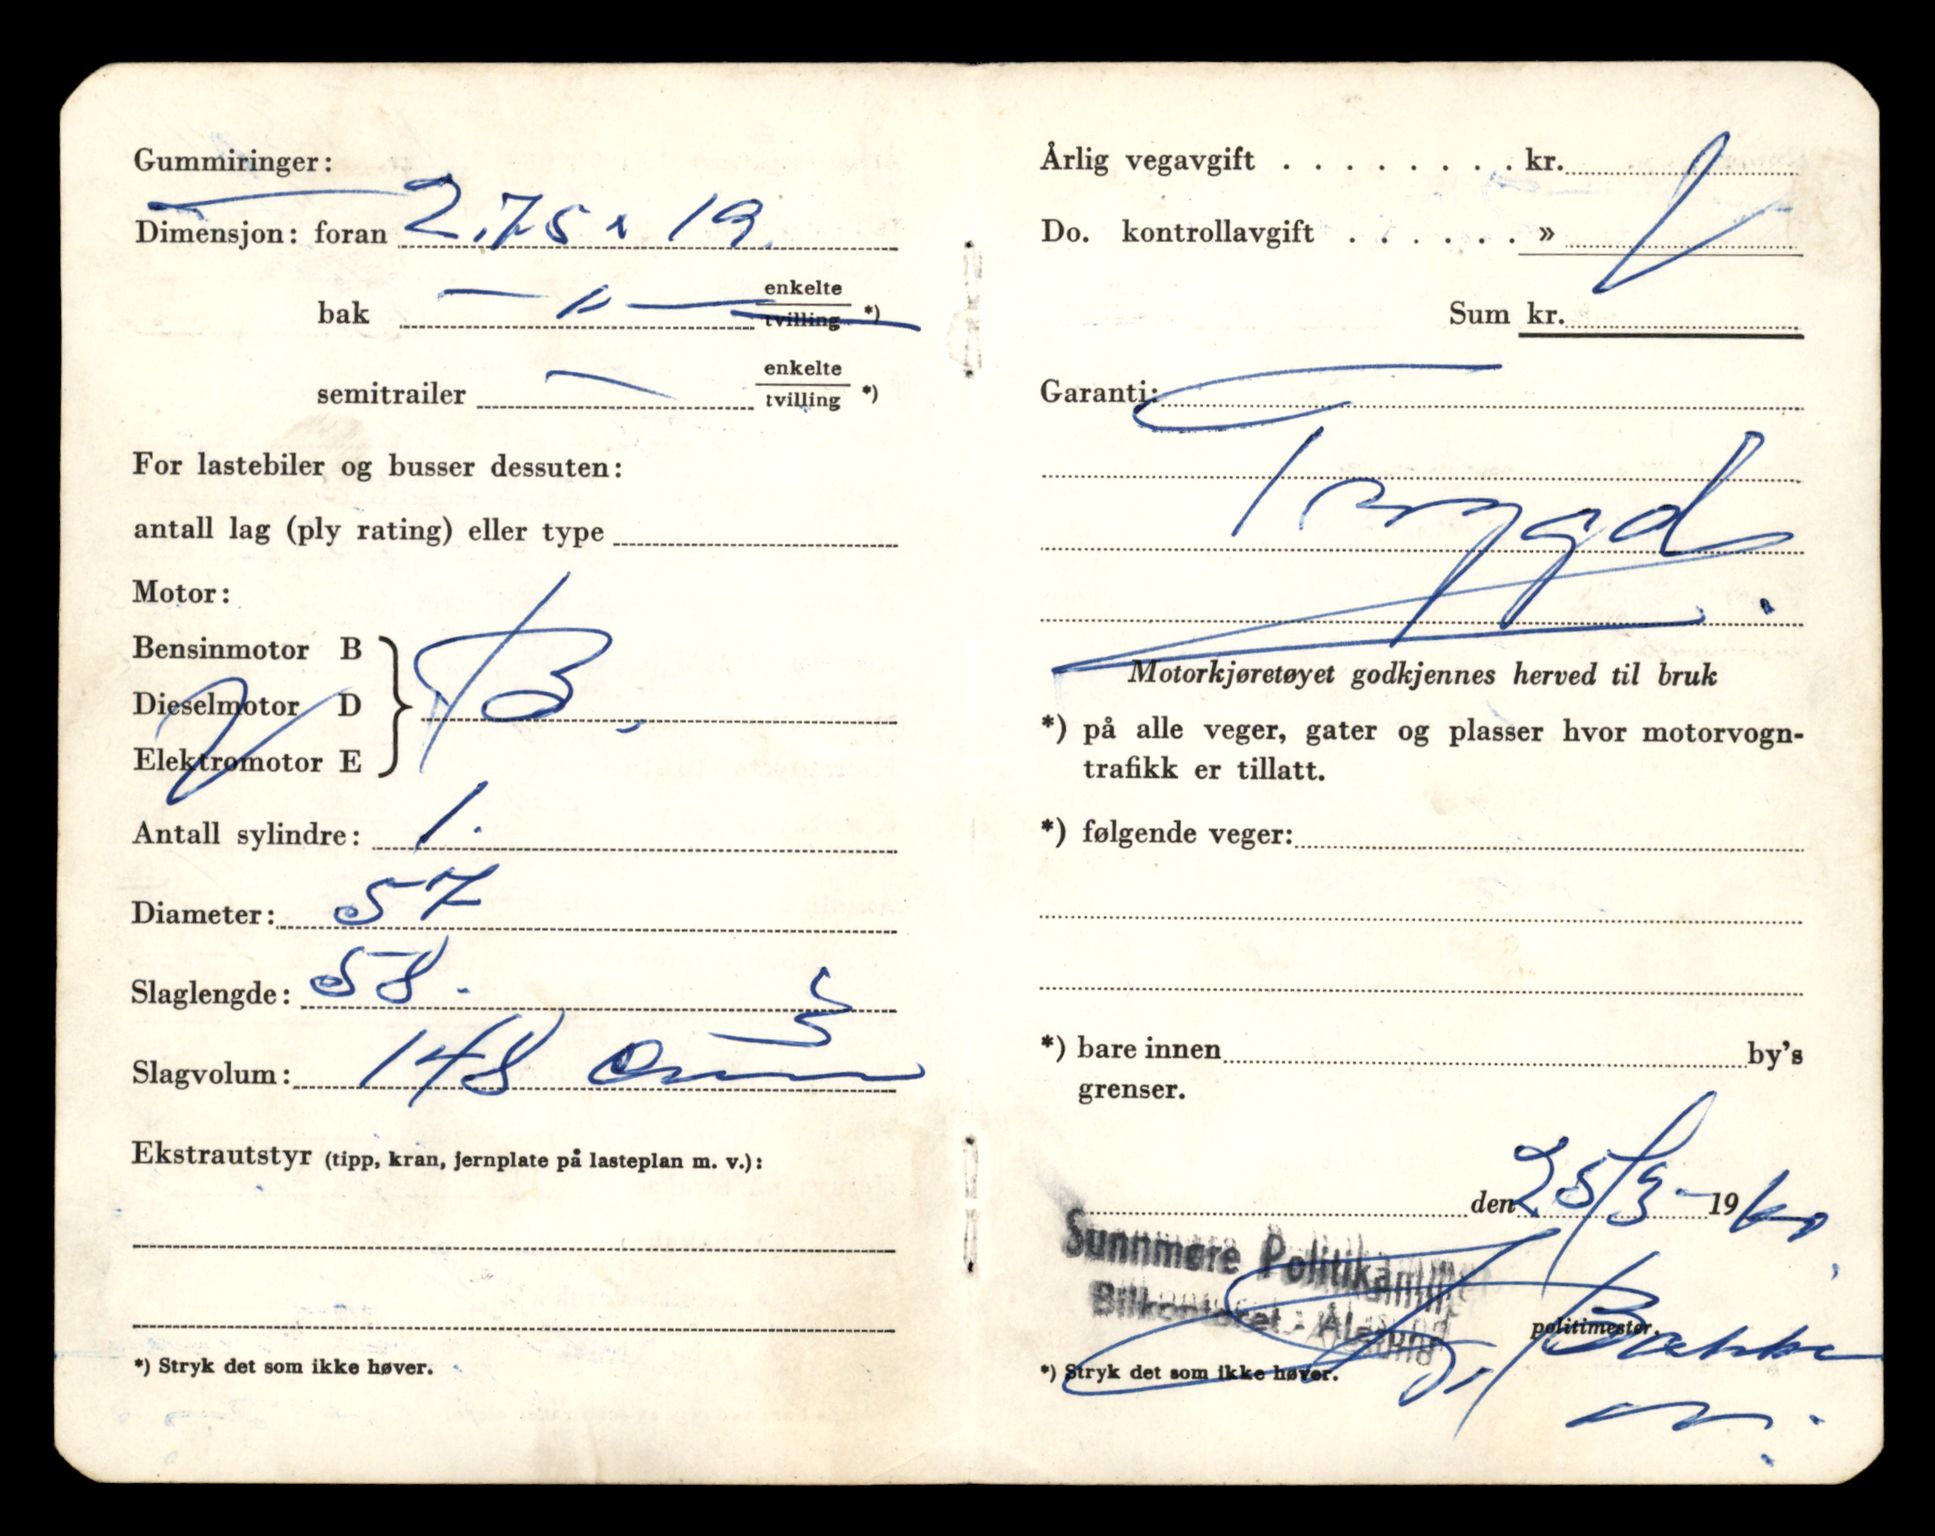 Gummiringer:
Dimensjon: foran 2.75 x 19.
bak — " — enkelte
tvilling *)
semitrailer — enkelte
tvilling *)
For lastebiler og busser dessuten:
antall lag (ply rating) eller type
Motor:
Bensinmotor B
Dieselmotor D
Elektromotor E
B.
Antall sylindre: 1.
Diameter: 57
Slaglengde: 58.
Slagvolum: 148 cm3
Ekstrautstyr (tipp, kran, jernplate på lasteplan m. v.):
*) Stryk det som ikke høver.
Årlig vegavgift . . . . . . . . kr.
Do. kontrollavgift . . . . . . »
Sum kr.
Garanti:
Trygd
Motorkjøretøyet godkjennes herved til bruk
*) på alle veger, gater og plasser hvor motorvogn-
trafikk er tillatt.
*) følgende veger:
*) bare innen by's
grenser.
den 25/3 - 1960
Sunnmøre Politikammer
Bilkontoret - Ålesund
politimester.
*) Stryk det som ikke høver.